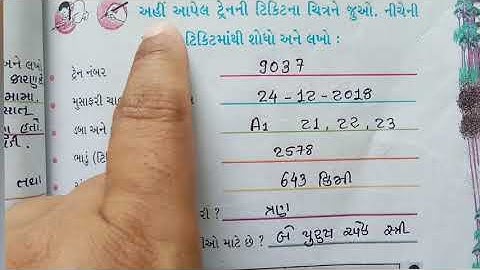 અહીં આપેલ ટ્રેનની ટિકિટના ચિત્રને જુઓ. નીચેની
ટિકિટમાંથી શોધો અને લખો :
ટ્રેન નંબર 9037
મુસાફરી 24-12-2018
ડબા અને A1 21, 22, 23
ભાડું 2578
643 કિમી
? ત્રણ
માટે છે ? બે પુરુષ એક સ્ત્રી
અને લખો
તથા